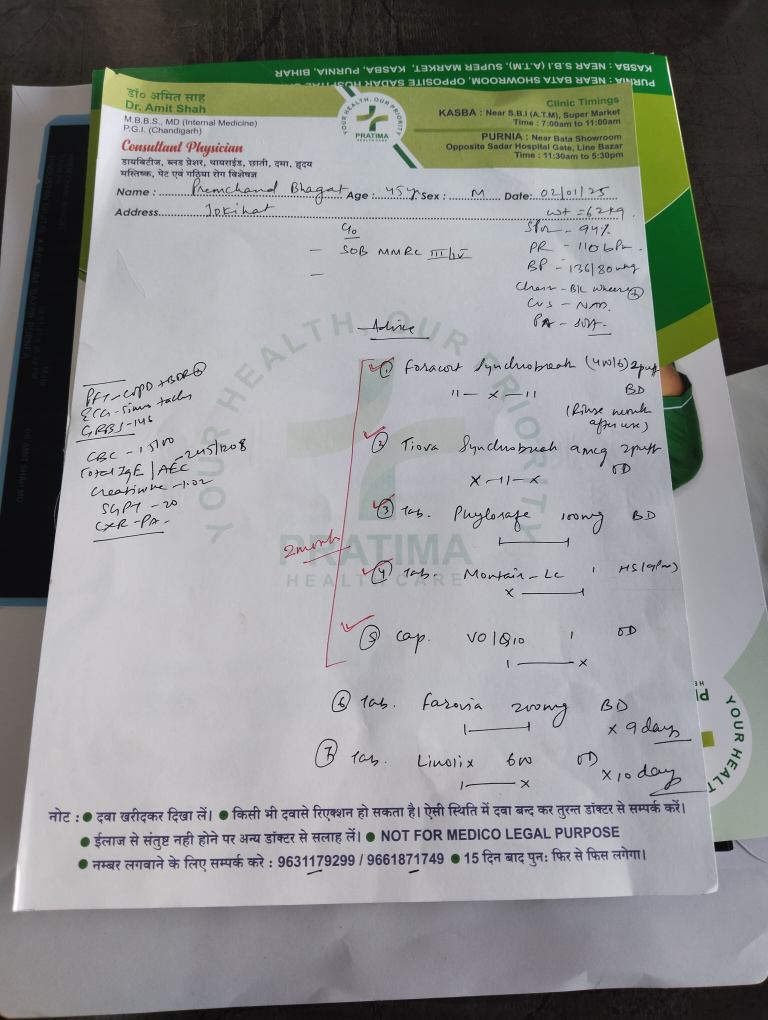 KASBA : NEAR S.B.I (A.T.M), SUPER MARKET, KASBA, PURNIA, BIHAR
PURNIA : NEAR BATA SHOWROOM, OPPOSITE SADAR
डॉ० अमित साह
Dr. Amit Shah
M.B.B.S., MD (Internal Medicine)
P.G.I. (Chandigarh)
Consultant Physician
डायबिटीज, ब्लड प्रेशर, थायराईड, छाती, दमा, हृदय
मस्तिष्क, पेट एवं गठिया रोग विशेषज्ञ
YOUR HEALTH, OUR PRIORITY
PRATIMA
HEALTH CARE
Clinic Timings
KASBA : Near S.B.I (A.T.M), Super Market
Time : 7:00am to 11:00am
PURNIA : Near Bata Showroom
Opposite Sadar Hospital Gate, Line Bazar
Time : 11:30am to 5:30pm
Name : Premchand Bhagat Age : 45y Sex : M Date: 02/01/25
Address Jokihat
wt = 62kg
C/o
- SOB MMRC III/IV
-
SPO2 - 94%
PR - 110 bPm
BP - 136/80 mmHg
Chest - B/L wheeze +
CVS - NAD
PA - Soft
Advice
PFT - COPD + BDR +
ECG - Sinus tachy
GRBS - 146
CBC -
Total IgE / AEC - /1208
Creatinine - 1.02
SGPT - 20
CXR - PA -
2 month
① Foracort Synchrobreath (400/6) 2puff BD
" - x - "
(Rinse mouth after use)
② Tiova Synchrobreath 9mcg 2puff OD
x - " - x
③ Tab. Phylosafe 100mg BD
④ Tab. Montair - LC 1 HS (9pm)
x
⑤ Cap. VO/Q10 1 OD
x
⑥ Tab. Farovia 200mg BD
x 9 days
⑦ Tab. Linolix 600 OD
x
x 10 days
YOUR HEALTH, OUR PRIORITY
PRATIMA
HEALTH CARE
YOUR HEALT
नोट : ● दवा खरीदकर दिखा लें। ● किसी भी दवासे रिएक्शन हो सकता है। ऐसी स्थिति में दवा बन्द कर तुरन्त डॉक्टर से सम्पर्क करें।
● ईलाज से संतुष्ट नही होने पर अन्य डॉक्टर से सलाह लें। ● NOT FOR MEDICO LEGAL PURPOSE
● नम्बर लगवाने के लिए सम्पर्क करे : 9631179299 / 9661871749 ● 15 दिन बाद पुनः फिर से फिस लगेगा।